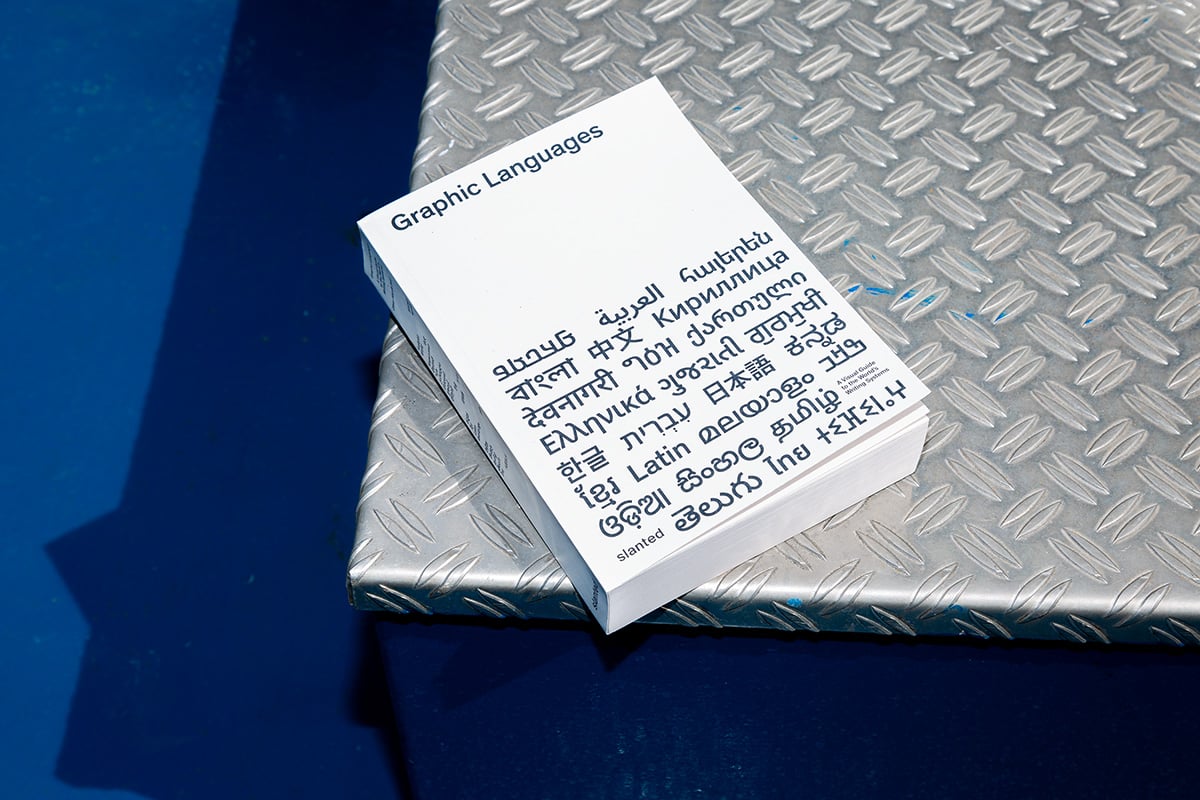 Graphic Languages
العربية հայերեն
বাংলা 中文 Кириллица
देवनागरी ግዕዝ ქართული
Ελληνικά ગુજરાતી ਗੁਰਮੁਖੀ
한글 עִבְרִית 日本語 ಕನ್ನಡ
ខ្មែរ Latin മലയാളം ߒߞߏ
ଓଡ଼ିଆ සිංහල தமிழ்
తెలుగు ไทย ⵜⵉⴼⵉⵏⴰⵖ
A Visual Guide
to the World's
Writing Systems
slanted
slanted